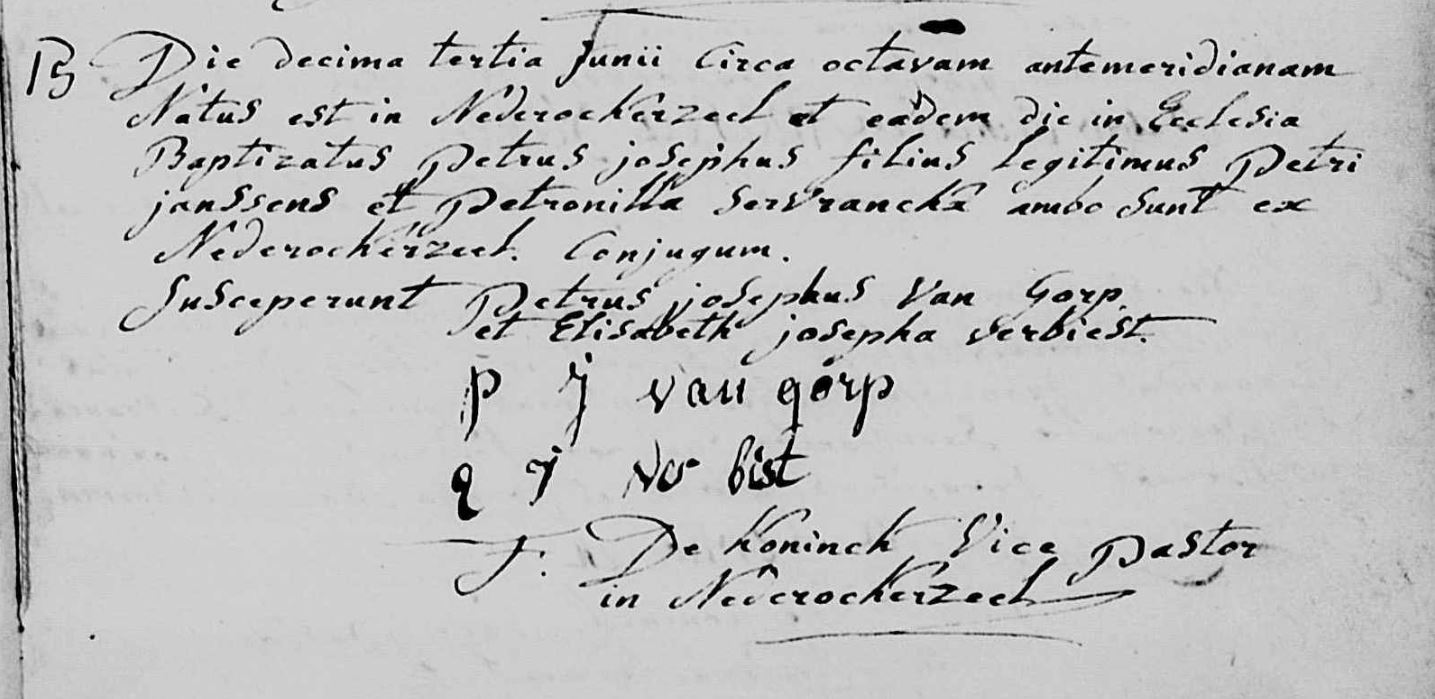 B Die decima tertia Junii Circa octavam antemeridianam
Natus est in Nederockerzeel et eadem die in Ecclesia
Baptizatus petrus josephus filius legitimus Petri
janssens et petronilla servranckx ambo sunt ex
Nederockerzeel. Conjugum.
Susceperunt Petrus josephus Van Gorp
et Elisabeth josepha verbiest.
p j van gorp
bist
J: De Koninck Vice pastor
in Nederockerzeel